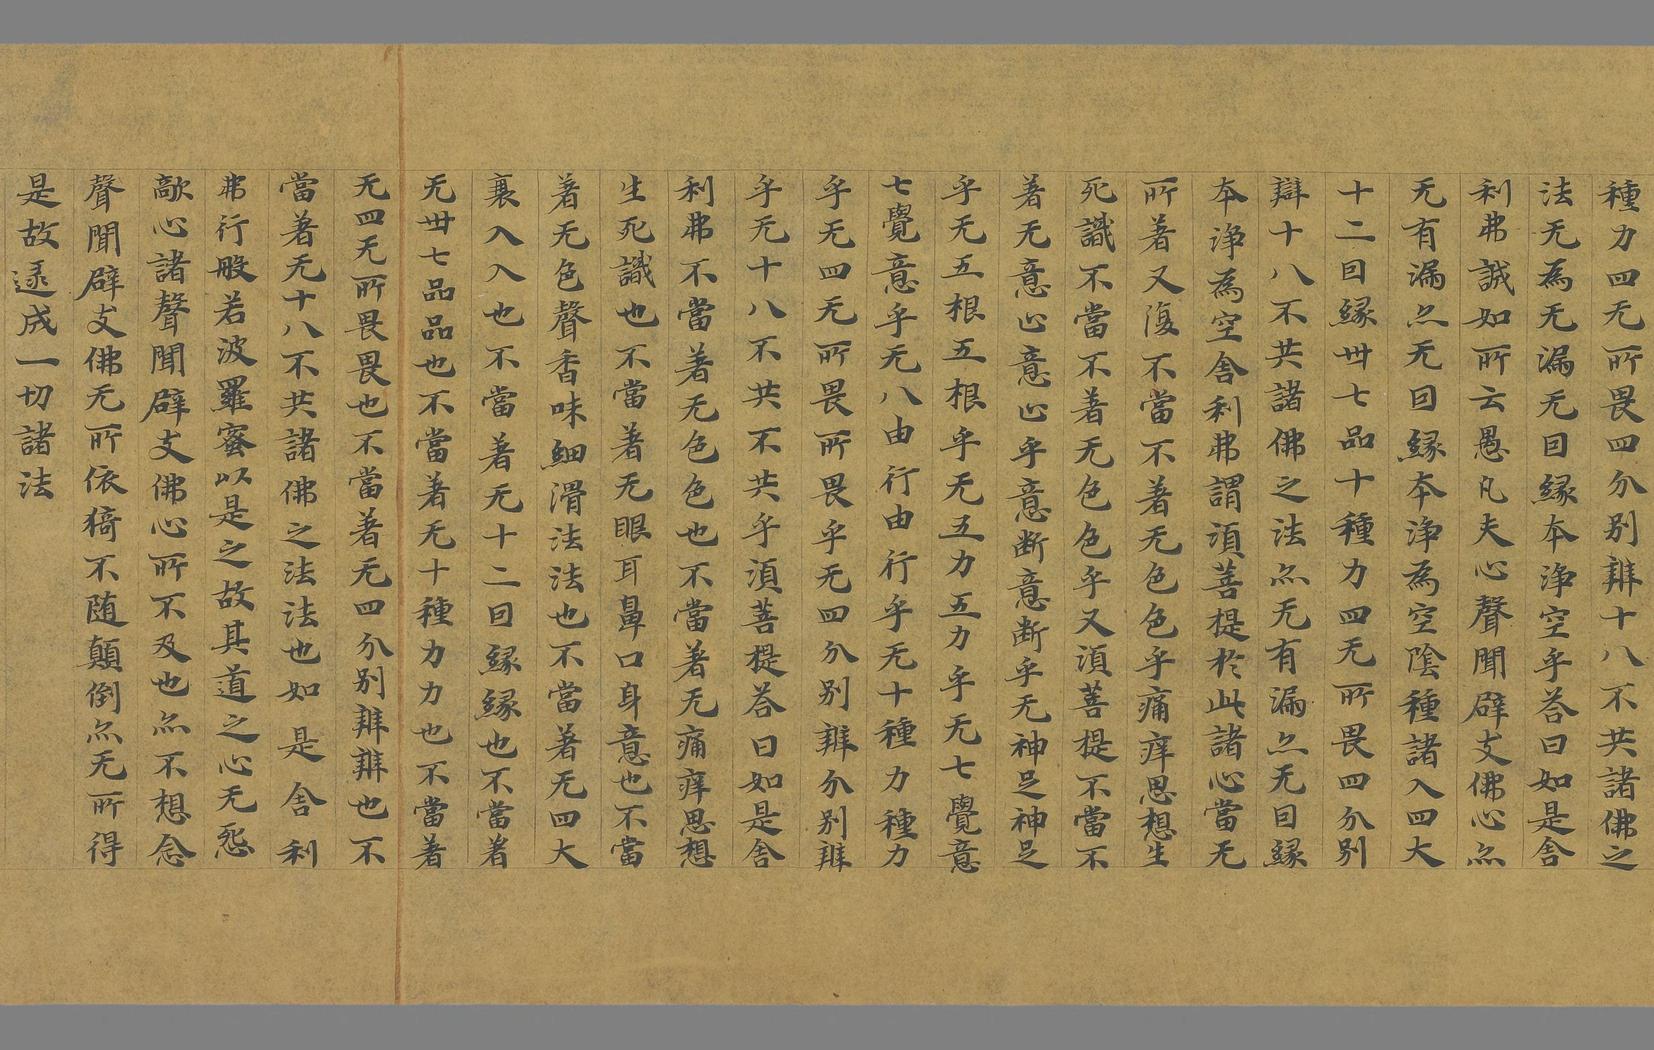 種力四无所畏四分別辯十八不共諸佛之
法无為无漏无因緣本淨空乎荅曰如是舍
利弗誠如所云愚凡夫心聲聞辟支佛心亦
无有漏亦无因緣本淨為空陰種諸入四大
十二因緣卅七品十種力四无所畏四分別
辯十八不共諸佛之法亦无有漏亦无因緣
本淨為空舍利弗謂須菩提於此諸心當无
所著又復不當不著无色色乎痛痒思想生
死識不當不著无色色乎又須菩提不當不
著无意止意止乎意斷意斷乎无神足神足
乎无五根五根乎无五力五力乎无七覺意
七覺意乎无八由行由行乎无十種力種力
乎无四无所畏所畏乎无四分別辯分別辯
乎无十八不共不共乎須菩提荅曰如是舍
利弗不當著无色色也不當著无痛痒思想
生死識也不當著无眼耳鼻口身意也不當
著无色聲香味細滑法法也不當著无四大
衰入入也不當著无十二因緣緣也不當著
无卅七品品也不當著无十種力力也不當著
无四无所畏畏也不當著无四分別辯辯也不
當著无十八不共諸佛之法法也如是舍利
弗行般若波羅蜜以是之故其道之心无怨
敵心諸聲聞辟支佛心所不及也亦不想念
聲聞辟支佛无所依猗不随顛倒亦无所得
是故逮成一切諸法